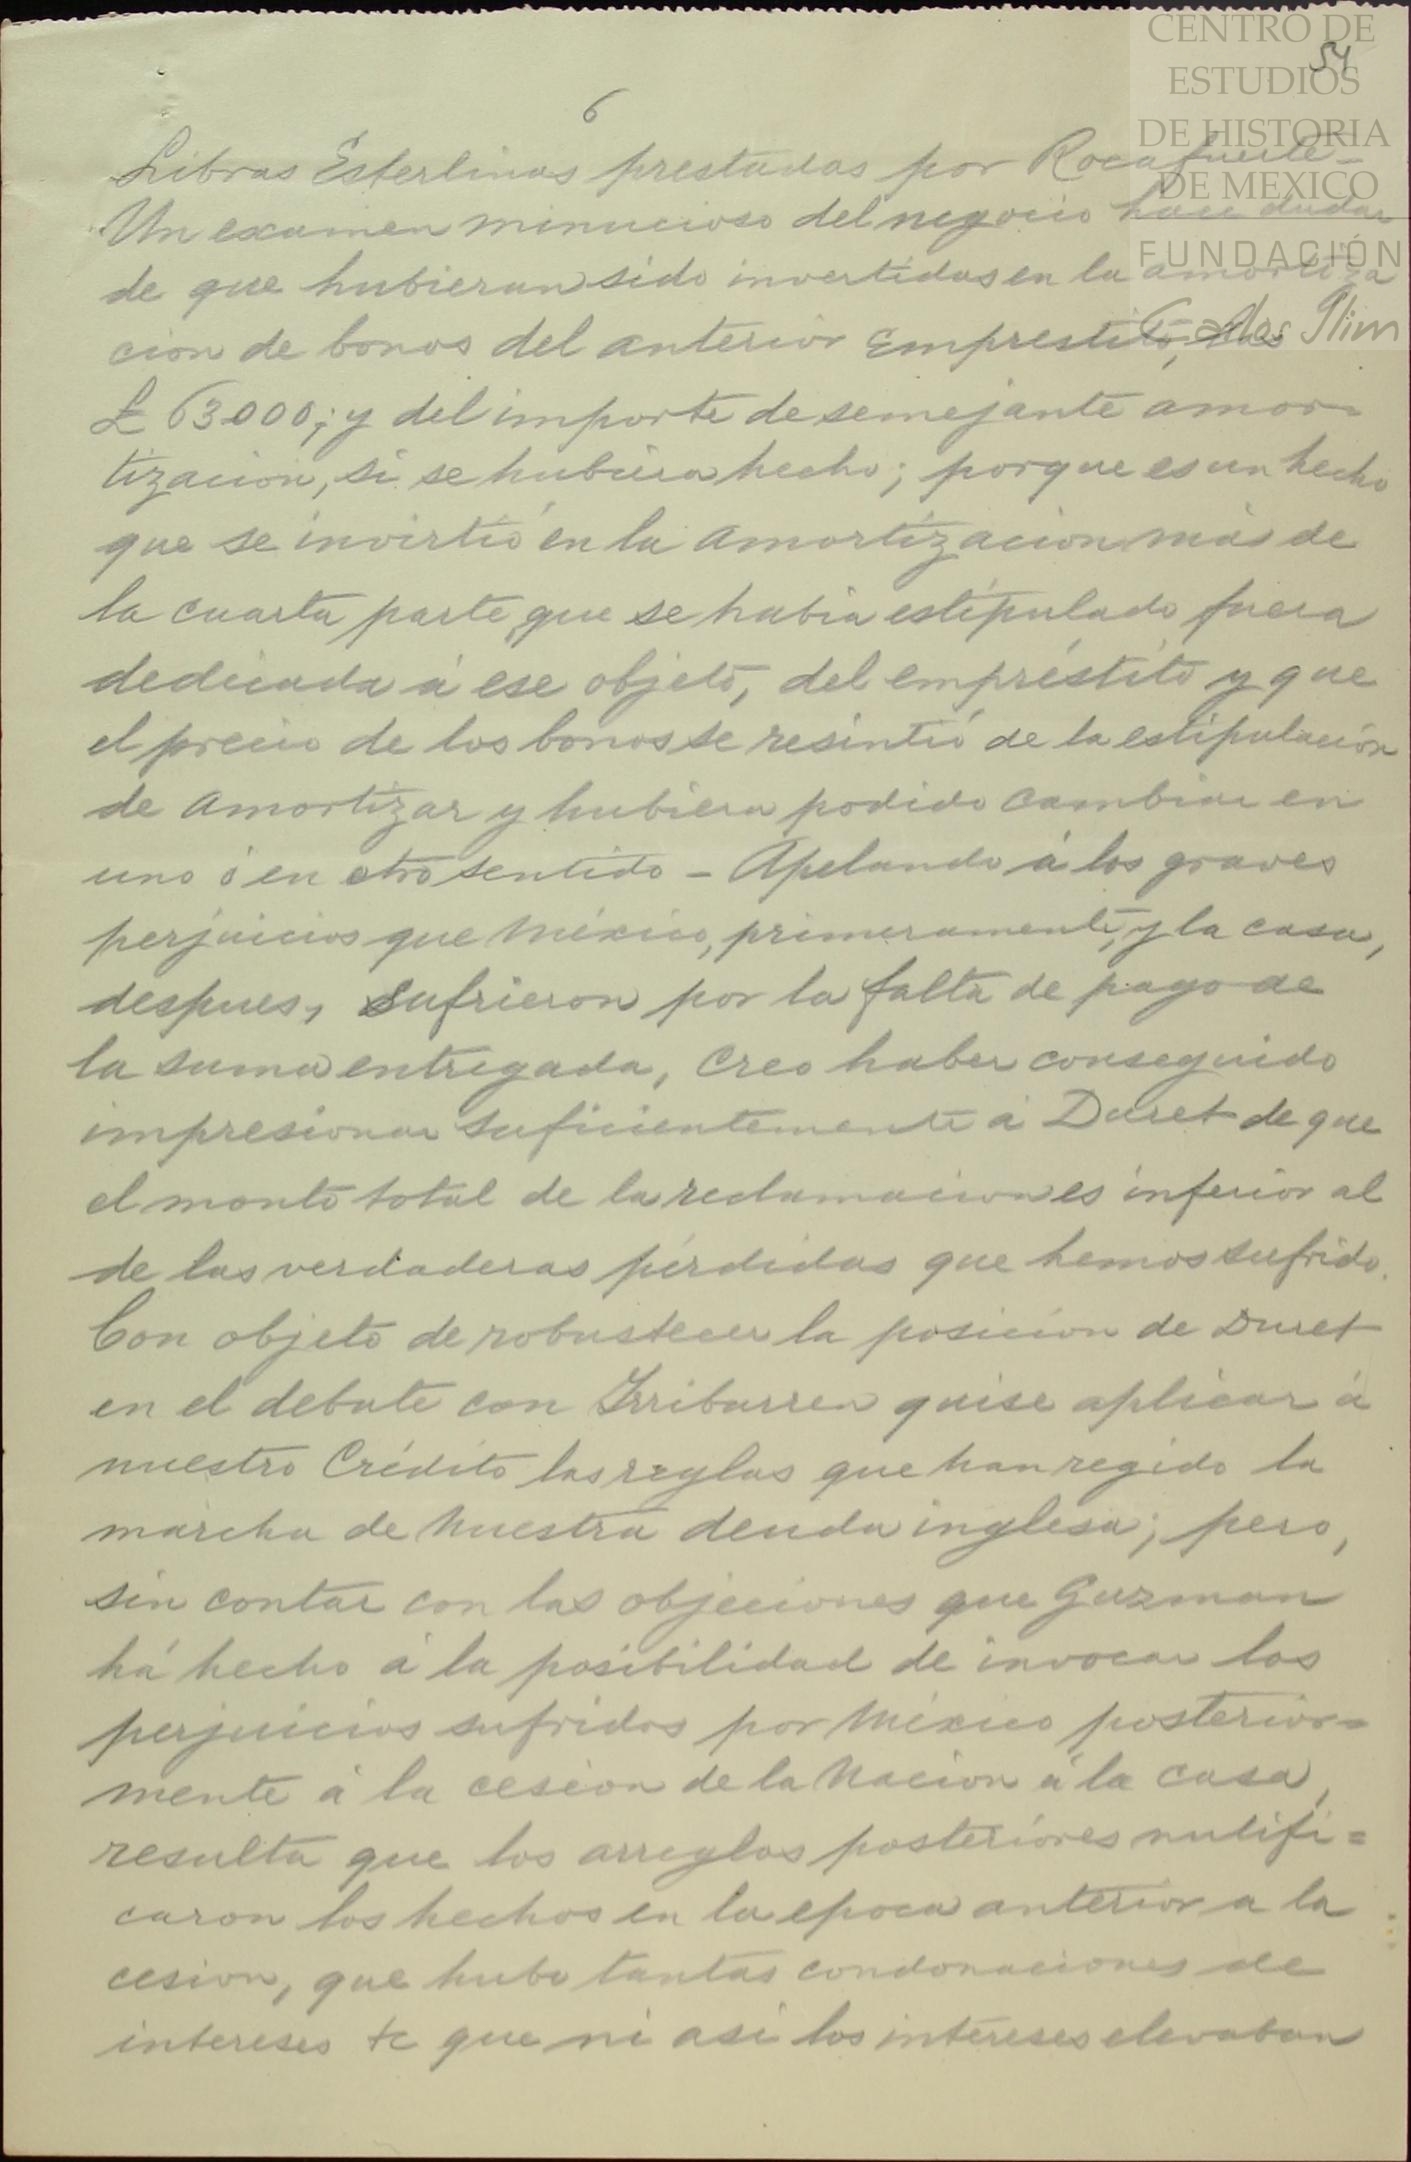 CENTRO DE
ESTUDIOS
DE HISTORIA
DE MEXICO
FUNDACIÓN
Carlos Slim
54
6
Libras Esterlinas prestadas por Rocafuerte_
Un examen minucioso del negocio hace dudar
de que hubieran sido invertidas en la amortiza
cion de bonos del anterior Emprestito, las
£ 63000; y del importe de semejante amor=
tizacion, si se hubiera hecho; porque es un hecho
que se invirtió en la amortizacion mas de
la cuarta parte que se habia estipulado fuera
dedicada á ese objeto, del empréstito y que
el precio de los bonos se resintió de la estipulación
de amortizar y hubiera podido cambiar en
uno ó en otro sentido _ Apelando á los graves
perjuicios que México, primeramente, y la casa,
despues, sufrieron por la falta de pago de
la suma entregada, Creo haber conseguido
impresionar suficientemente á Duret de que
el monto total de la reclamacion es inferior al
de las verdaderas pérdidas que hemos sufrido.
Con objeto de robustecer la posicion de Duret
en el debate con Irribarren quise aplicar á
nuestro Crédito las reglas que han regido la
marcha de nuestra deuda inglesa; pero,
sin contar con las objeciones que Guzman
há hecho á la posibilidad de invocar los
perjuicios sufridos por México posterior=
mente á la cesion de la Nacion á la casa,
resulta que los arreglos posteriores nulifi=
caron los hechos en la epoca anterior a la
cesion, que hubo tantas condonaciones de
intereses &c que ni asi los intereses elevaban